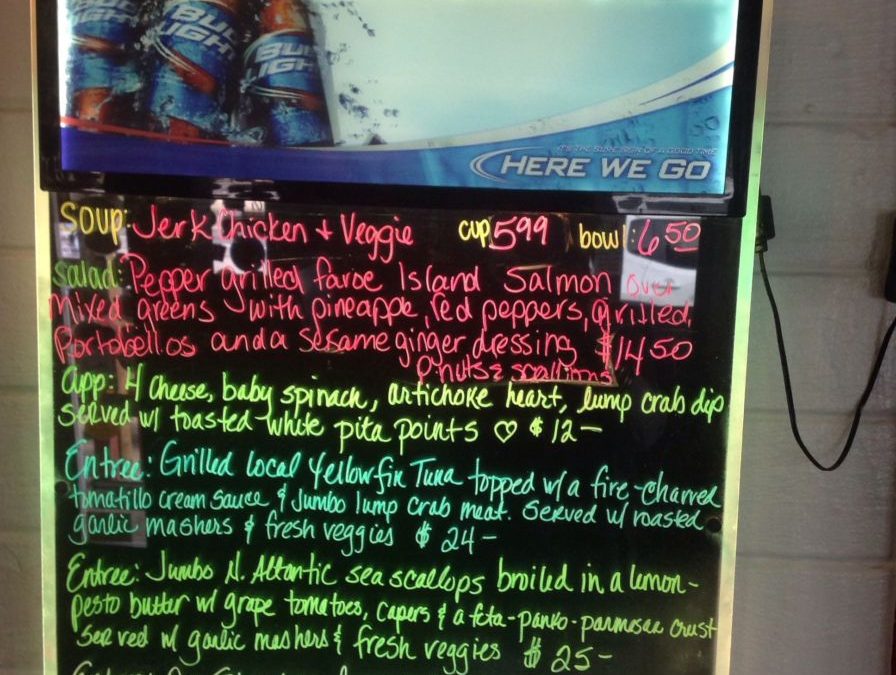 BUD LIGHT
BUD LIGHT
BUD LIGHT
IT'S THE SURE SIGN OF A GOOD TIME
HERE WE GO
Soup: Jerk Chicken + Veggie cup 599 bowl: 650
Salad: Pepper grilled faroe Island Salmon over
Mixed greens with pineapple, red peppers, grilled
Portobellos and a Sesame ginger dressing $1450
P-nuts & scallions
App: 4 Cheese, baby spinach, artichoke heart, lump crab dip
served w/ toasted white pita points ♡ $12-
Entree: Grilled local Yellowfin Tuna topped w/ a fire-charred
tomatillo cream sauce & Jumbo lump Crab meat. Served w/ roasted
garlic mashers & fresh veggies $24-
Entree: Jumbo N. Atlantic sea scallops broiled in a lemon-
pesto butter w/ grape tomatoes, capers & a feta-panko-parmesan crust
Served w/ garlic mashers & fresh veggies $25-